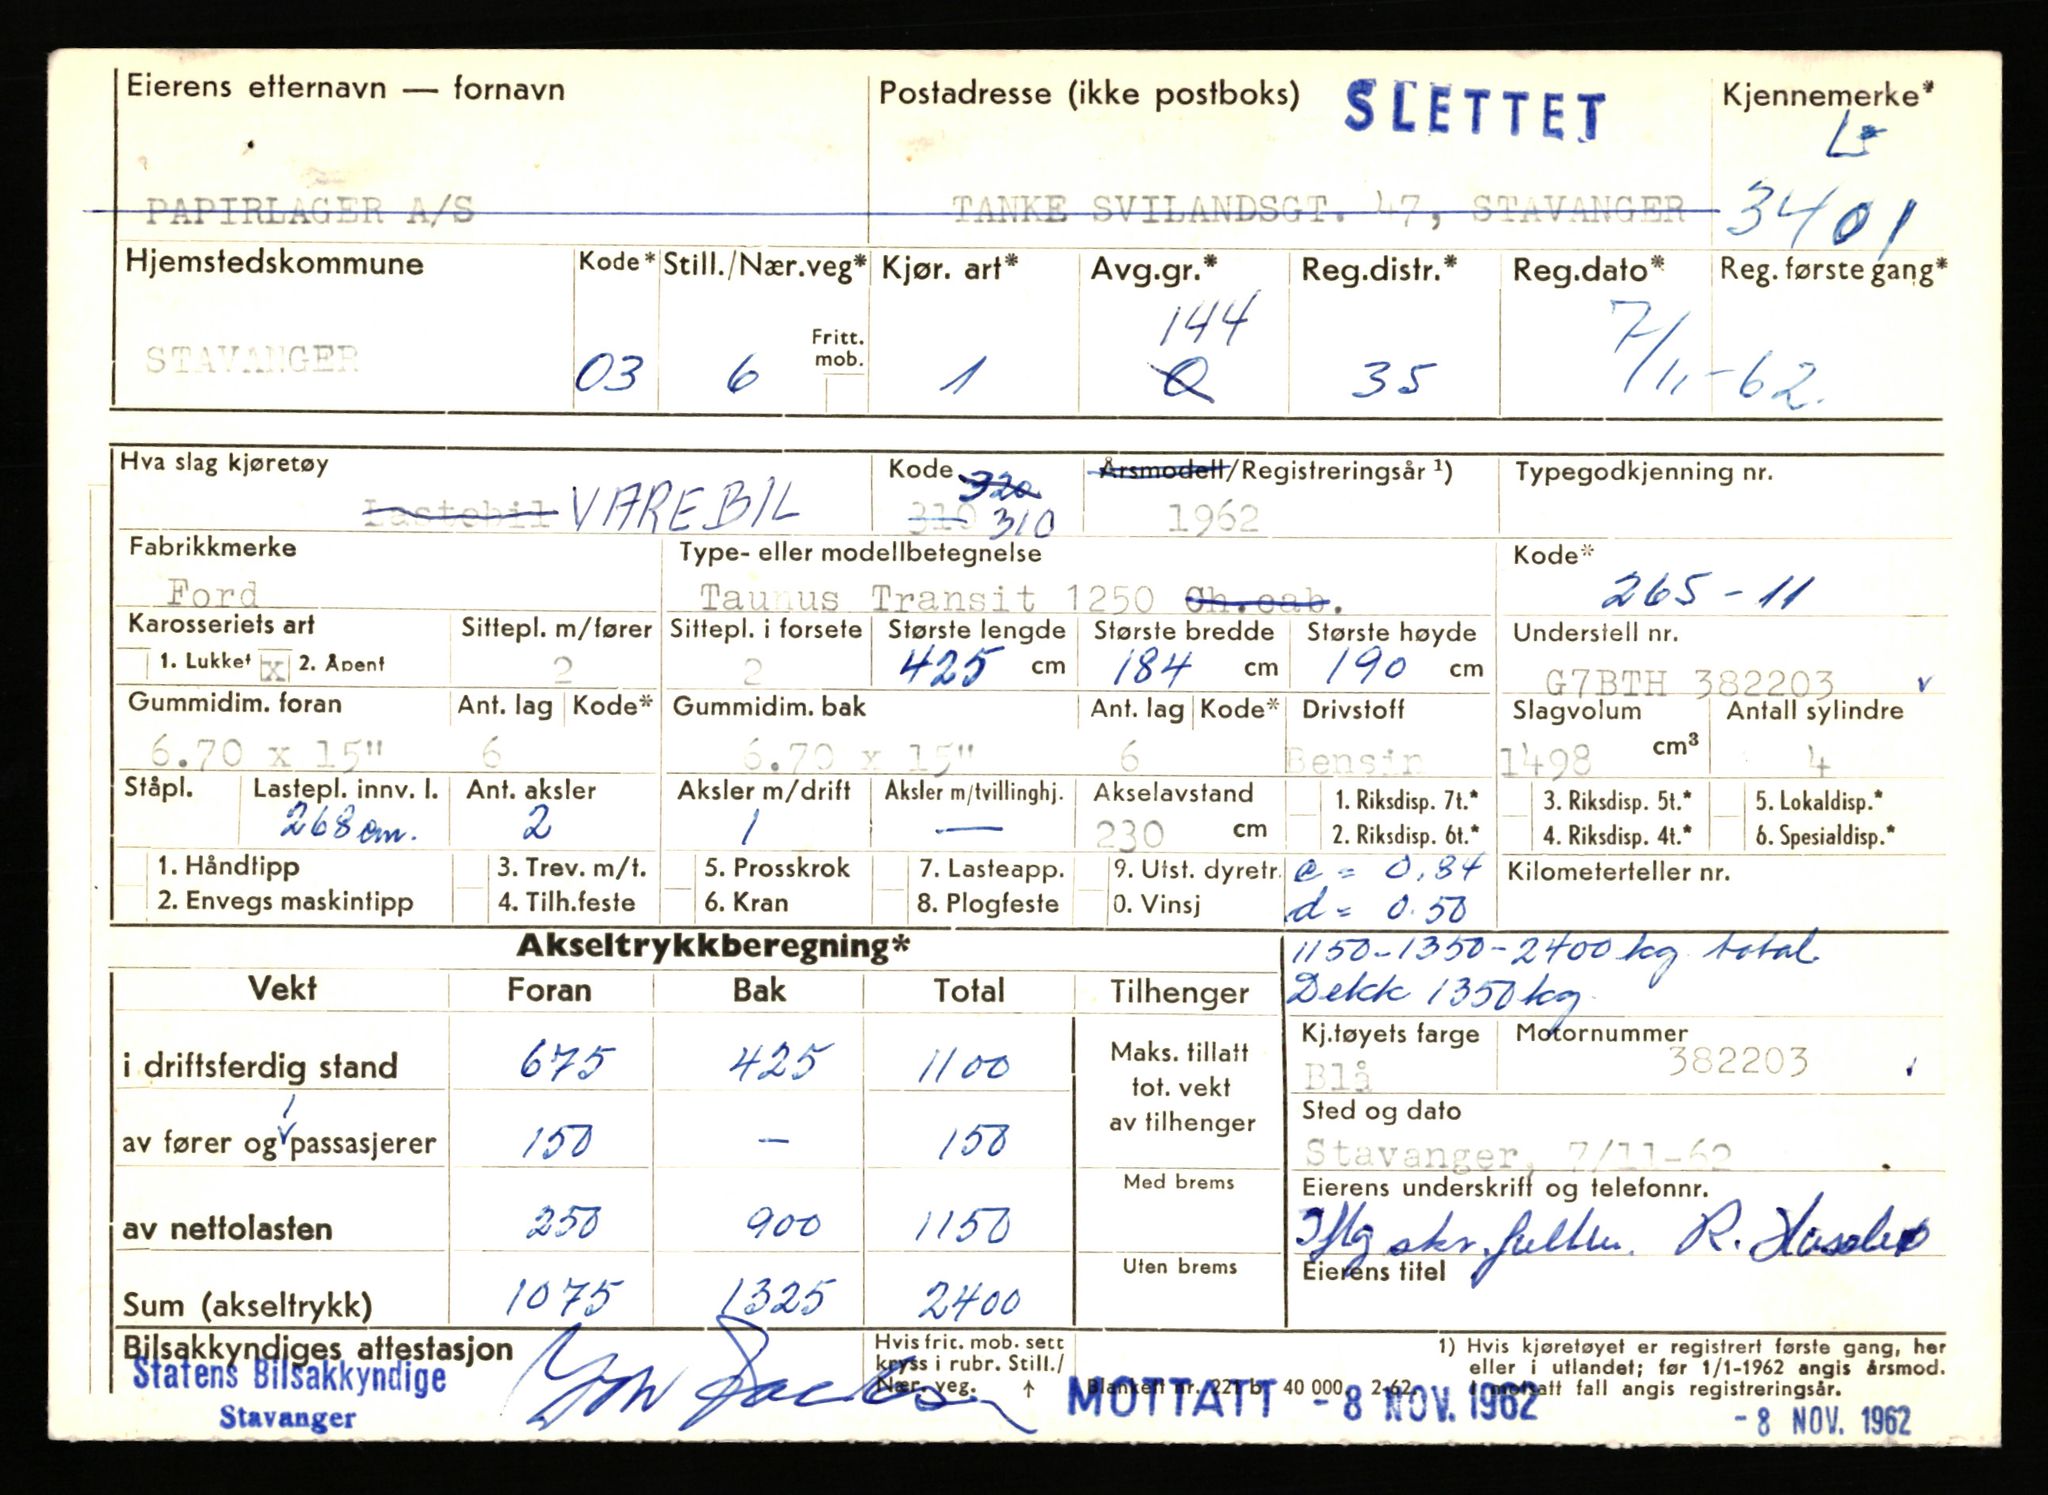 Eierens etternavn — fornavn
Postadresse (ikke postboks)
SLETTET
Kjennemerke*
L
PAPIRLAGER A/S
TANKE SVILANDSGT. 47, STAVANGER
3401
Hjemstedskommune Kode* Still./Nær.veg* Kjør. art* Avg.gr.* Reg.distr.* Reg.dato* Reg. første gang*
STAVANGER 03 6 Fritt. mob. 1 144 0 35 7/11-62.
Hva slag kjøretøy Kode Årsmodell/Registreringsår ¹) Typegodkjenning nr.
Lastebil VAREBIL 310 320 310 1962
Fabrikkmerke Type- eller modellbetegnelse Kode*
Ford Taunus Transit 1250 Ch.cab. 265-11
Karosseriets art Sittepl. m/fører Sittepl. i forsete Største lengde Største bredde Største høyde Understell nr.
1. Lukket x 2. Åpent 2 2 425 cm 184 cm 190 cm G7BTH 382203
Gummidim. foran Ant. lag Kode* Gummidim. bak Ant. lag Kode* Drivstoff Slagvolum Antall sylindre
6.70 x 15" 6 6.70 x 15" 6 Bensin 1498 cm³ 4
Ståpl. Lastepl. innv. l. Ant. aksler Aksler m/drift Aksler m/tvillinghj. Akselavstand 1. Riksdisp. 7t.* 3. Riksdisp. 5t.* 5. Lokaldisp.*
268 cm. 2 1 — 230 cm 2. Riksdisp. 6t.* 4. Riksdisp. 4t.* 6. Spesialdisp.*
1. Håndtipp 3. Trev. m/t. 5. Prosskrok 7. Lasteapp. 9. Utst. dyretr. c = 0,84 Kilometerteller nr.
2. Envegs maskintipp 4. Tilh.feste 6. Kran 8. Plogfeste 0. Vinsj d = 0.50
Akseltrykkberegning*
1150-1350-2400 kg total
Dekk 1350 kg
Vekt Foran Bak Total Tilhenger
i driftsferdig stand 675 425 1100
av fører og 1 passasjerer 150 – 150
av nettolasten 250 900 1150
Sum (akseltrykk) 1075 1325 2400
Maks. tillatt
tot. vekt
av tilhenger
Med brems
Uten brems
Kj.tøyets farge Motornummer
Blå 382203
Sted og dato
Stavanger, 7/11-62
Eierens underskrift og telefonnr.
Iflg skr. fullm. R.
Eierens titel
Bilsakkyndiges attestasjon
Statens Bilsakkyndige
Stavanger
Hvis frit. mob. sett
kryss i rubr. Still./
Nær. veg. ↑
Blankett nr. 221 b. 40 000. 2-62
1) Hvis kjøretøyet er registrert første gang, her
eller i utlandet; før 1/1-1962 angis årsmod.
I motsatt fall angis registreringsår.
MOTTATT - 8 NOV. 1962
- 8 NOV. 1962